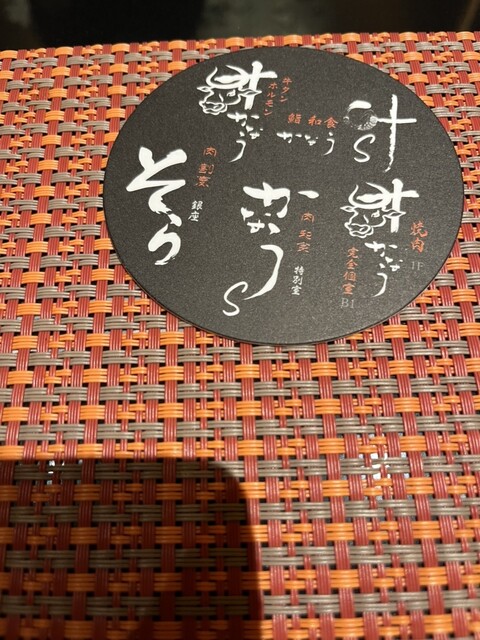 牛タン
ホルモン
叶
かなう
鮨 和食
かなう
叶
S
肉割烹
そうり
銀座
かなう
S
特別室
焼肉
1F
叶
かなう
完全個室
B1